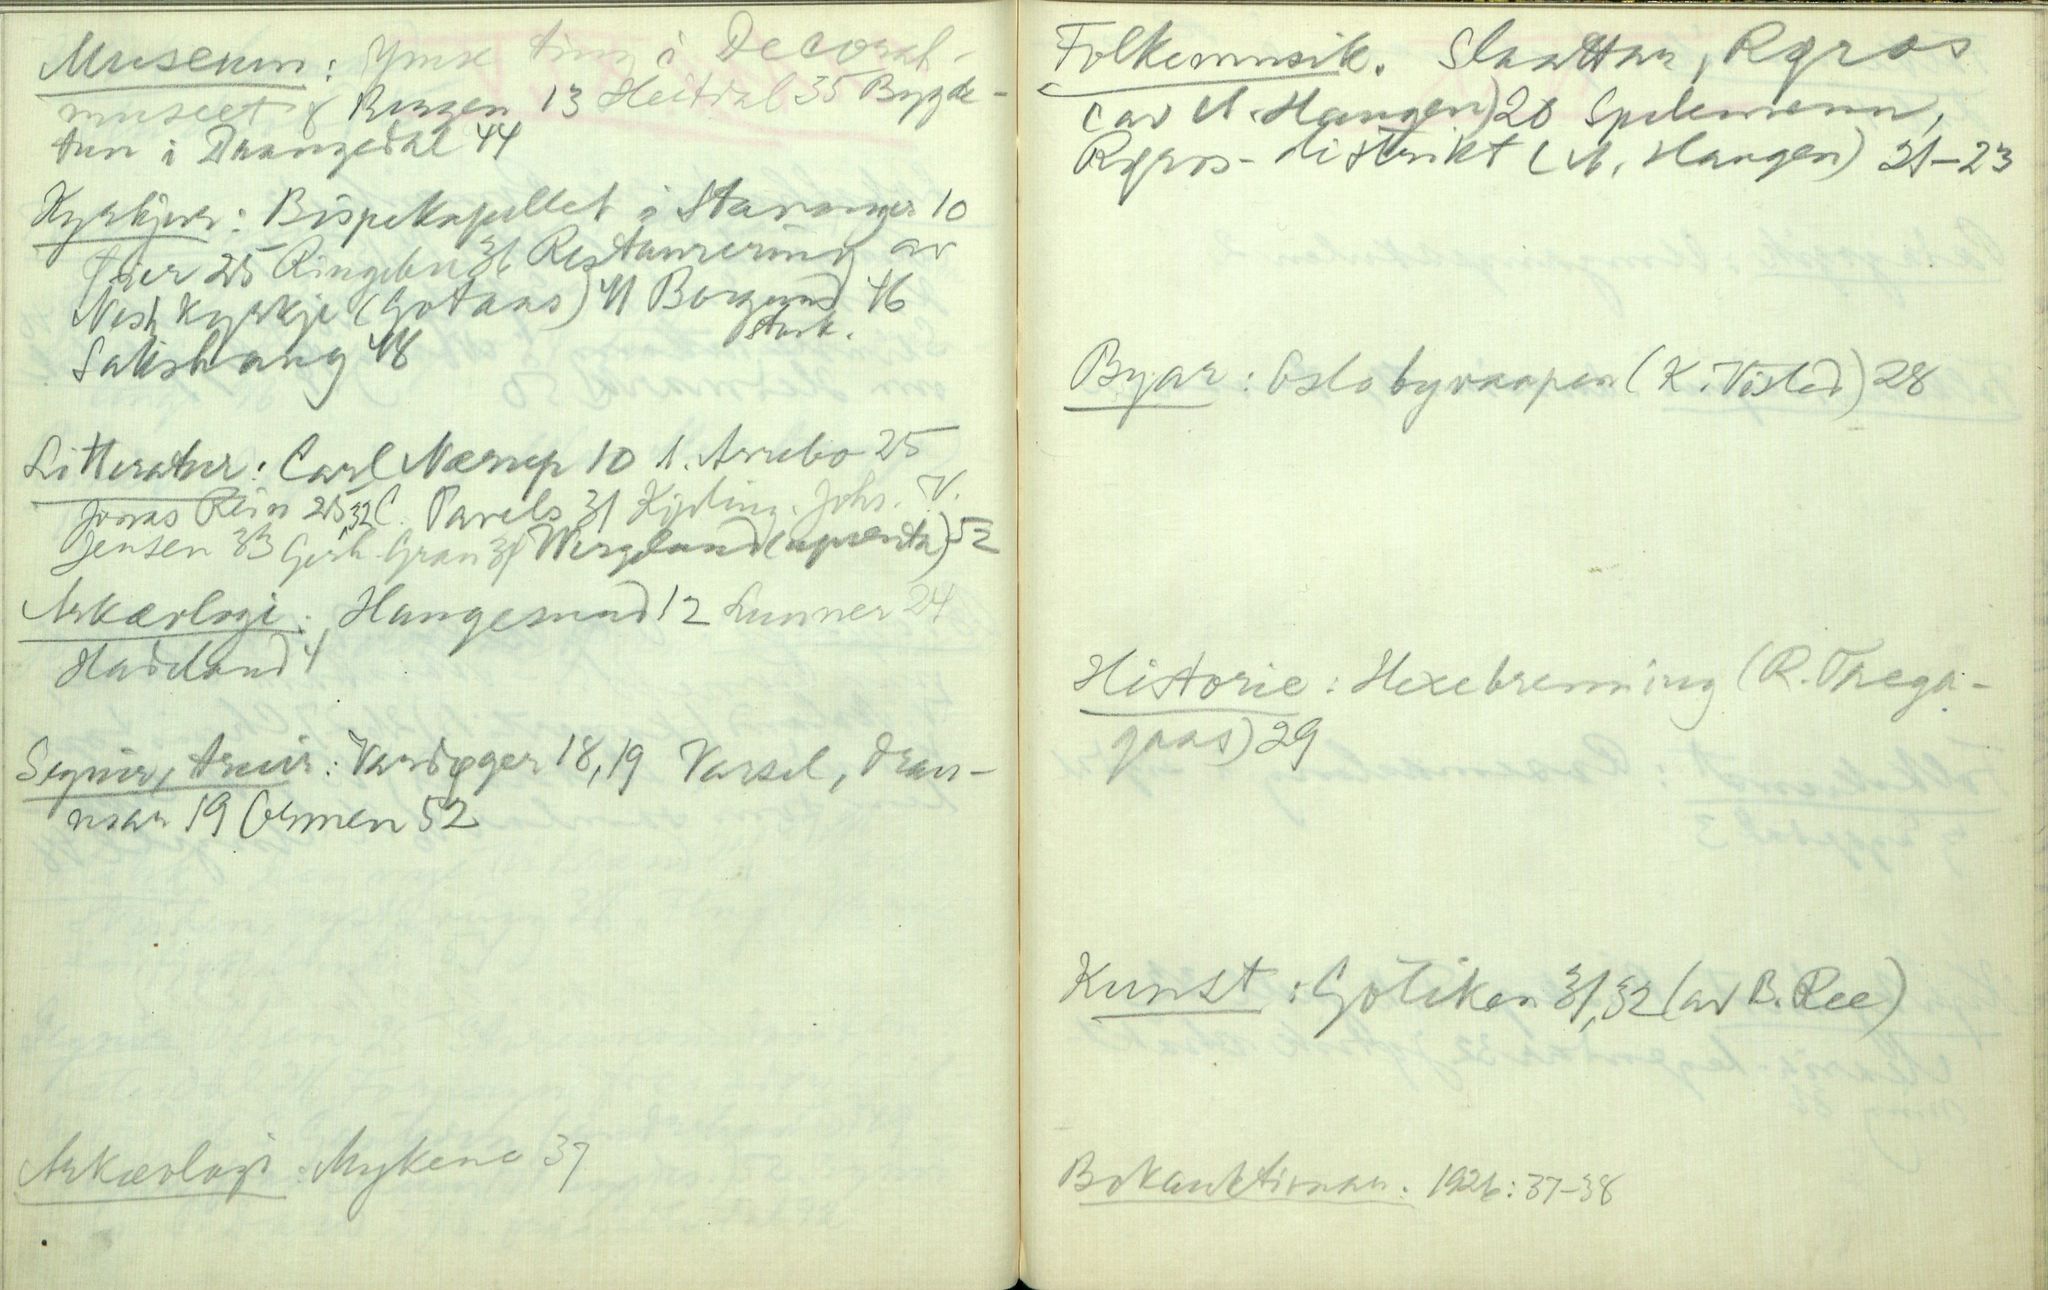 Museum: Ymse ting i Decorah-
museet 8 Bergen 13 Heitdal 35 Bygde-
tun i Drangedal 44
Kyrkjer: Bispekapellet i Stavanger 10
Øier 25 Ringebu 31 Restaurering av
Nesh kyrkje (Gotaas) 41 Borgund 46
stavk.
Sakshaug 48
Litteratur: Carl Nærup 10 A. Arrebo 25
Jonas Rein 25, 32 C. Pavels 31 Kipling. Johs. V.
Jensen 33 Gerh. Gran 34 Wergeland (uprenta) 52
Arkæologi: Haugesund 12 Lunner 24
Hadeland 4
Segner, truer: Vardøger 18, 19 Varsel, drau-
mar 19 Ormen 52
Arkæologi: Mykene 37
Folkemusik. Slaattar, Røros
(av M. Haugen) 20 Spelemenn,
Røros-distrikt (M. Haugen) 21-23
Byar: Oslo byvaapen (K. Visted) 28
Historie: Hexebrenning (R. Thega-
gaas) 29
Kunst: Gotiken 31, 32 (av B. Ree)
Bokauktionar. 1926: 37-38